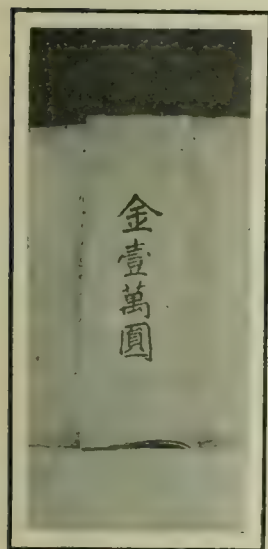 金壹萬圓